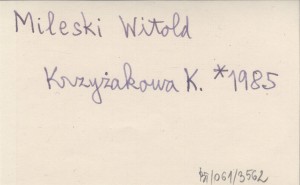 Mileski Witold
Krzyżakowa K. *1985
/061/3562